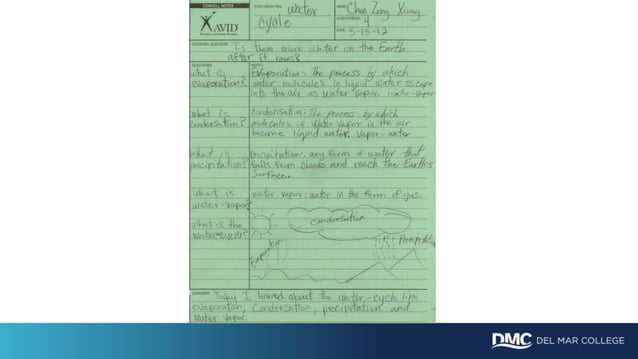 CORNELL NOTES
TOPIC/OBJECTIVE: water
cycle
NAME: Chue Zong Xiong
CLASS/PERIOD: 4
DATE: 5-15-12
AVID
ESSENTIAL QUESTION: Is there more water on the Earth
after it rains?
QUESTIONS:
NOTES:
what is
evaporation?
Evaporation: The process by which
water molecules in liquid water escape
into the air as water vapor. water-vapor
what is
condensation?
Condensation: The process by which
molecules of water vapor in the air
become liquid water. Vapor-water
what is
precipitation?
Precipitation: any form of water that
falls from clouds and reach the Earth's
surface.
what is
water-vapor?
water vapor: water in the form of gas.
what is the
water-cycle?
condensation
Precipitation
Evaporation
SUMMARY: Today I learned about the water-cycle like
evaporation, Condensation, precipitation and
water vapor.
DMC DEL MAR COLLEGE